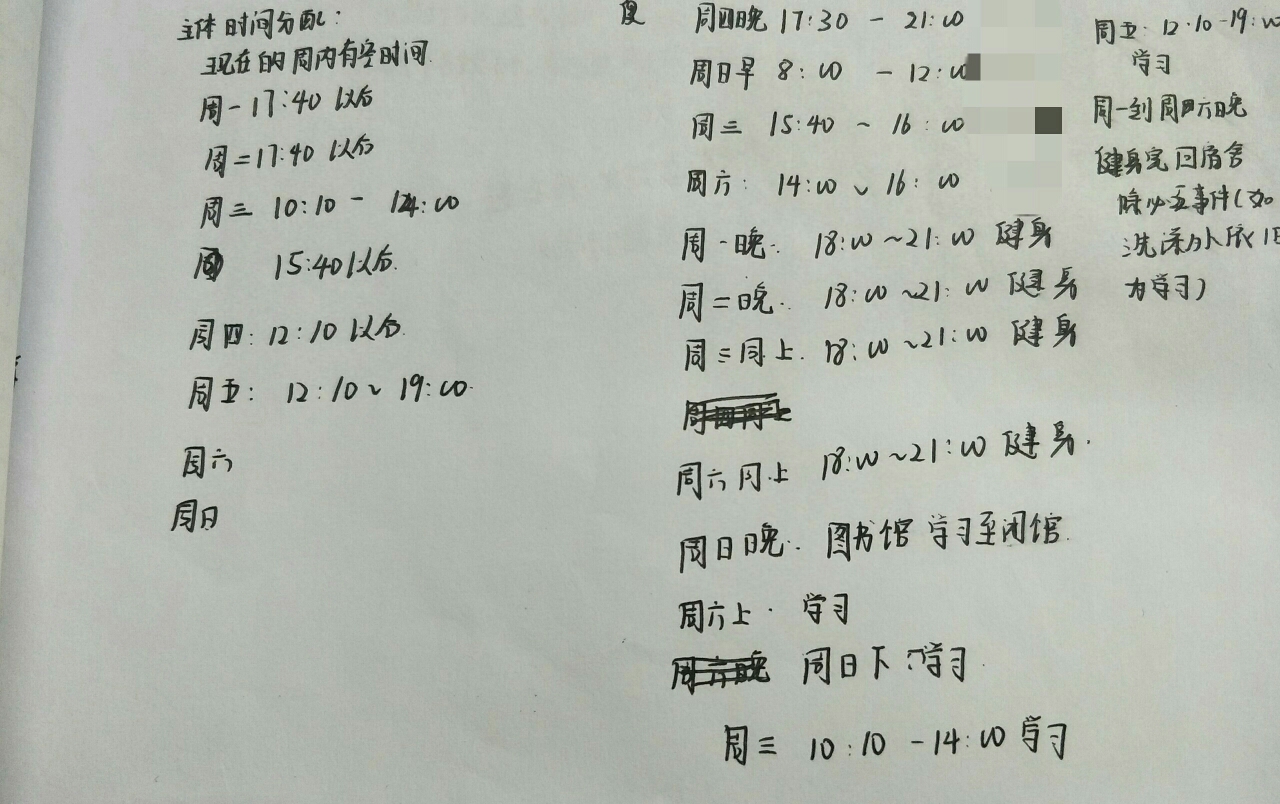 主体时间分配：
现在的周内有空时间
周一17:40以后
周二17:40以后
周三 10:10 - 14:00
15:40以后.
周四: 12:10以后.
周五: 12:10~19:00.
周六
周日
周四晚 17:30 - 21:00
周日早 8:00 - 12:00
周三 15:40 ~ 16:00
周六: 14:00~16:00
周一晚. 18:00~21:00 健身
周二晚. 18:00~21:00 健身
周三同上. 18:00~21:00 健身
周六同上 18:00~21:00 健身.
周日晚. 图书馆 学习至闭馆.
周六上. 学习
周日下:学习.
周三 10:10-14:00 学习
周五: 12:10-19:00
学习
周一到周六晚
健身完回宿舍
除必要事件(如
洗澡外依旧
为学习)